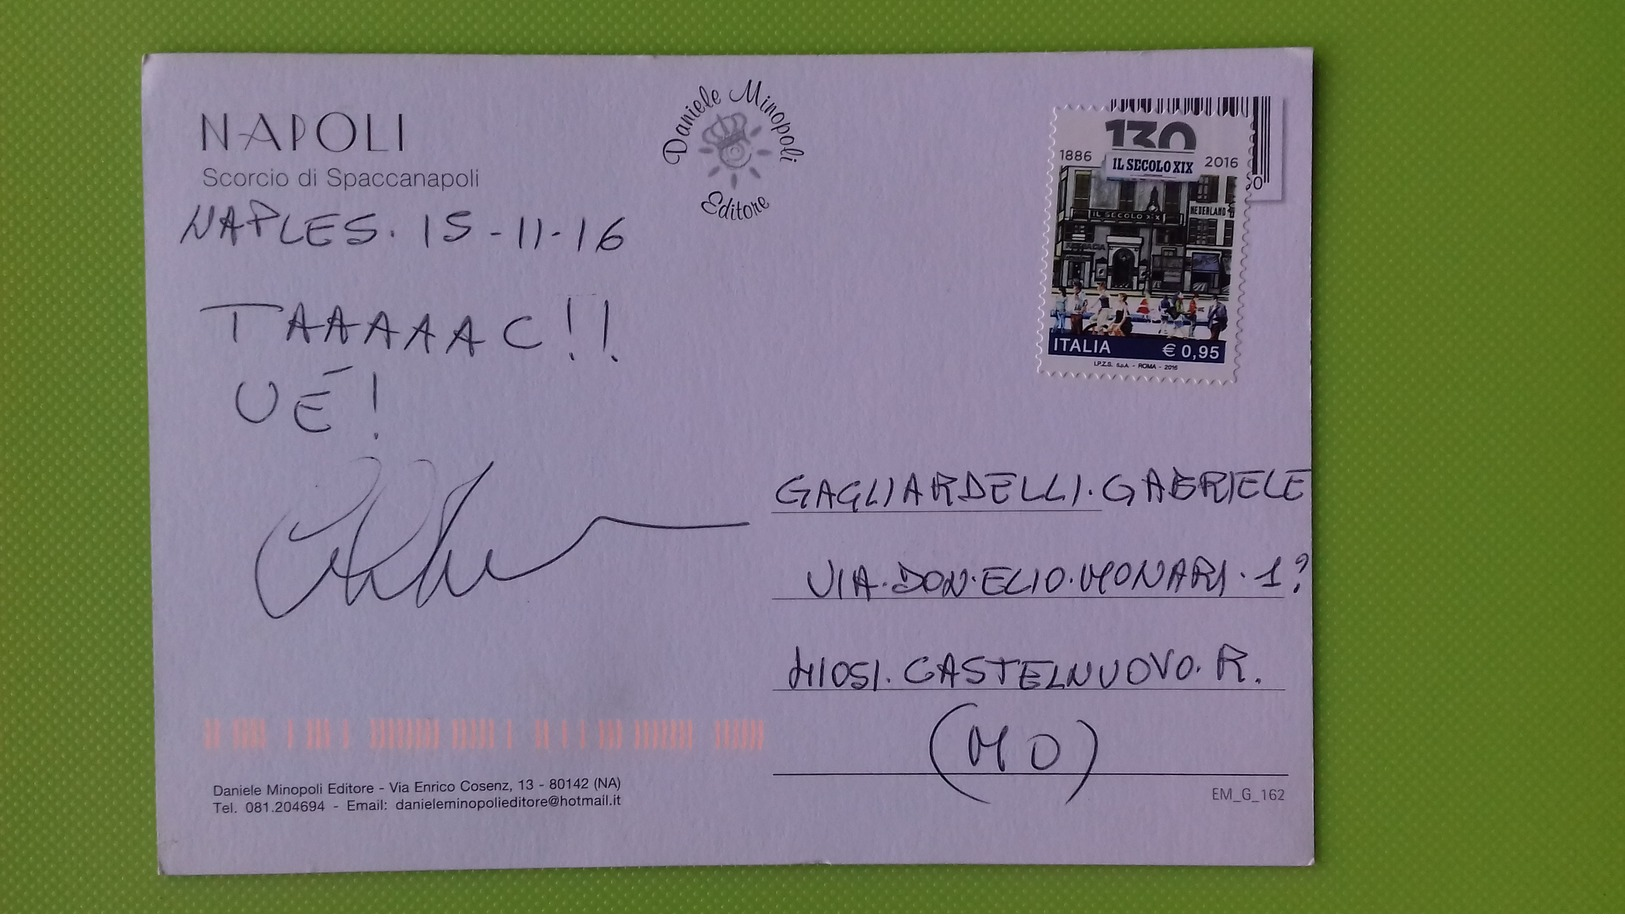 NAPOLI
Scorcio di Spaccanapoli
NAPLES. 15-11-16
TAAAAAC!!
UÉ!
Daniele Minopoli
Editore
130
1886 IL SECOLO XIX 2016
IL SECOLO XIX
NEDERLAND
ITALIA € 0,95
I.P.Z.S. S.p.A. - ROMA - 2016
GAGLIARDELLI. GABRIELE
VIA. DON. ELIO. MONARI. 1?
41051. CASTELNUOVO. R.
(MO)
Daniele Minopoli Editore - Via Enrico Cosenz, 13 - 80142 (NA)
Tel. 081.204694 - Email: danieleminopolieditore@hotmail.it
EM_G_162